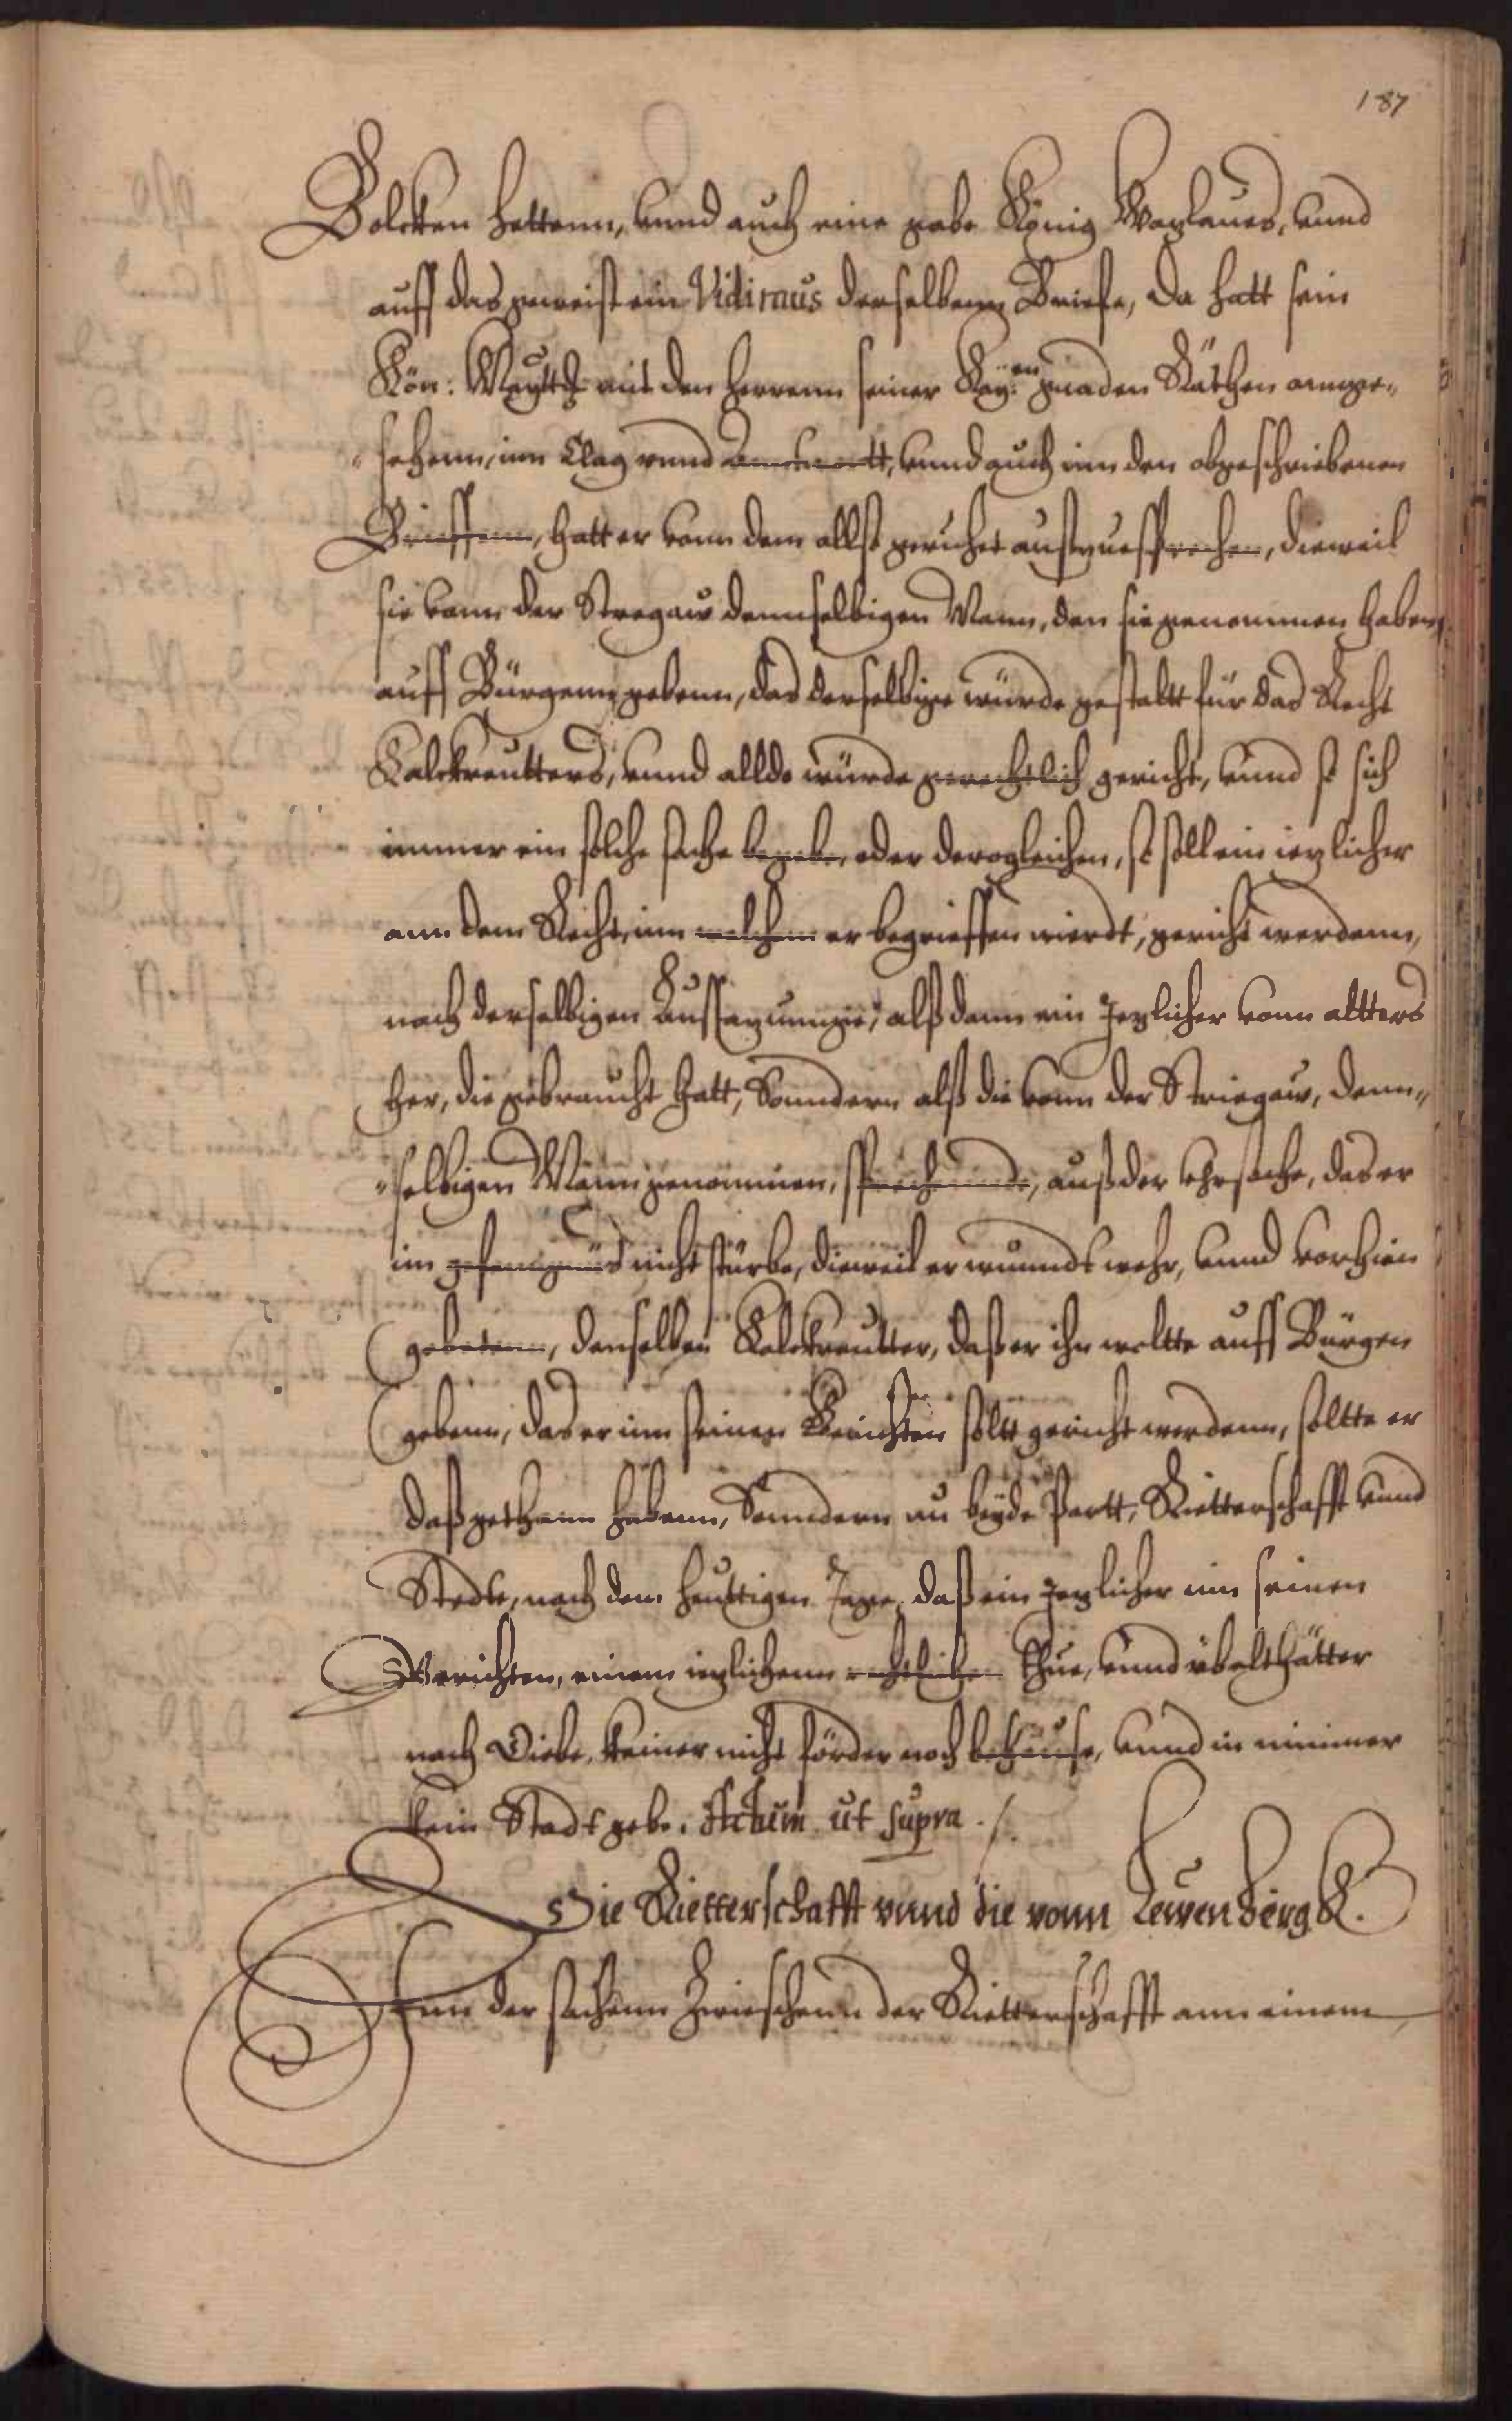 187
Bolcken hettenn, vnnd auch eine gabe König Wenzlaues, vnnd
auff das zuerist ein Vidimus derselbenn Briefe, Da hatt sein
Kön: Maytt: mit den Herrenn seiner Kay:en gnaden Räthen annge-
sehenn, inn Clag vnnd Anntwortt, vnnd auch inn den obgeschriebenen
Briffenn, hatt er vonn dem allß geruhet außzuesprechen, dieweil
sie vonn der Stregaw dennselbigen Mann, den sie genommen haben,
auff Bürgenn gebenn, das derselbige würde gestaltt für das Recht
Kalckreutters, vnnd allda würde gerechtlich gericht, vnnd so sich
immer ein solche sache begebe, oder dergleichen, so soll ein ieglicher
ann dem Recht, inn welchem er begrieffen wierdt, gericht werdenn,
nach derselbigen Aussazunnge, alß dann ein Jeglicher vonn altters
her, die gebraucht hatt, Sonndern alß die vonn der Striegaw, denn-
selbigen Mann genommen, sprechennde, auß der vhrsache, das er
im gefenngnüs nicht stürbe, dieweil er wunndt wehr, vnnd vorhien
gebetenn, denselben Kalckreutter, daß er ihn woltte auff Bürgen
gebenn, das er inn seinen Gerichten soltt gericht werdenn, soltte er
daß gethann habenn, Sonndern an beyde Partt, Ritterschafft vnnd
Stedte, nach dem heuttigen Tage, daß ein Jeglicher inn seinen
Gerichten, einem ieglichenn rechtlichen thue, vnnd übelthätter
noch Diebe, keiner nicht förder noch behause, vnnd in nimmer
kein Stadt gebe. Actum ut supra ./.
Die Rietterschafft vnnd die vonn Lewenberg &.
Inn der sachenn Zwieschenn der Rietterschafft ann einem